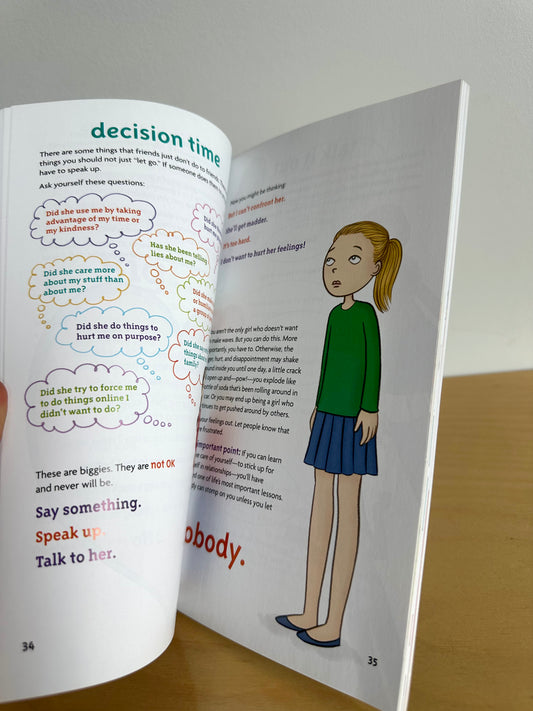 decision time
There are some things that friends just don't do to friends.
things you should not just "let go." If someone does them
have to speak up.
Ask yourself these questions:
Did she use me by taking
advantage of my time or
my kindness?
Did she
hurt
Has she been telling
lies about me?
Did she care more
about my stuff than
about me?
Did she
or
a
Did she do things to
hurt me on purpose?
Did she
things
family?
Did she try to force me
to do things online I
didn't want to do?
These are biggies. They are not OK
and never will be.
Say something.
Speak up.
Talk to her.
34
Now you might be thinking:
But I can't confront her.
She'll get madder.
It's too hard.
I don't want to hurt her feelings!
aren't the only girl who doesn't want
make waves. But you can do this. More
you have to. Otherwise, the
hurt, and disappointment may shake
around inside you until one day, a little crack
open up and—pow!—you explode like
of soda that's been rolling around in
car. Or you may end up being a girl who
to get pushed around by others.
your feelings out. Let people know that
frustrated.
important point: If you can learn
care of yourself—to stick up for
in relationships—you'll have
one of life's most important lessons.
can stomp on you unless you let
35